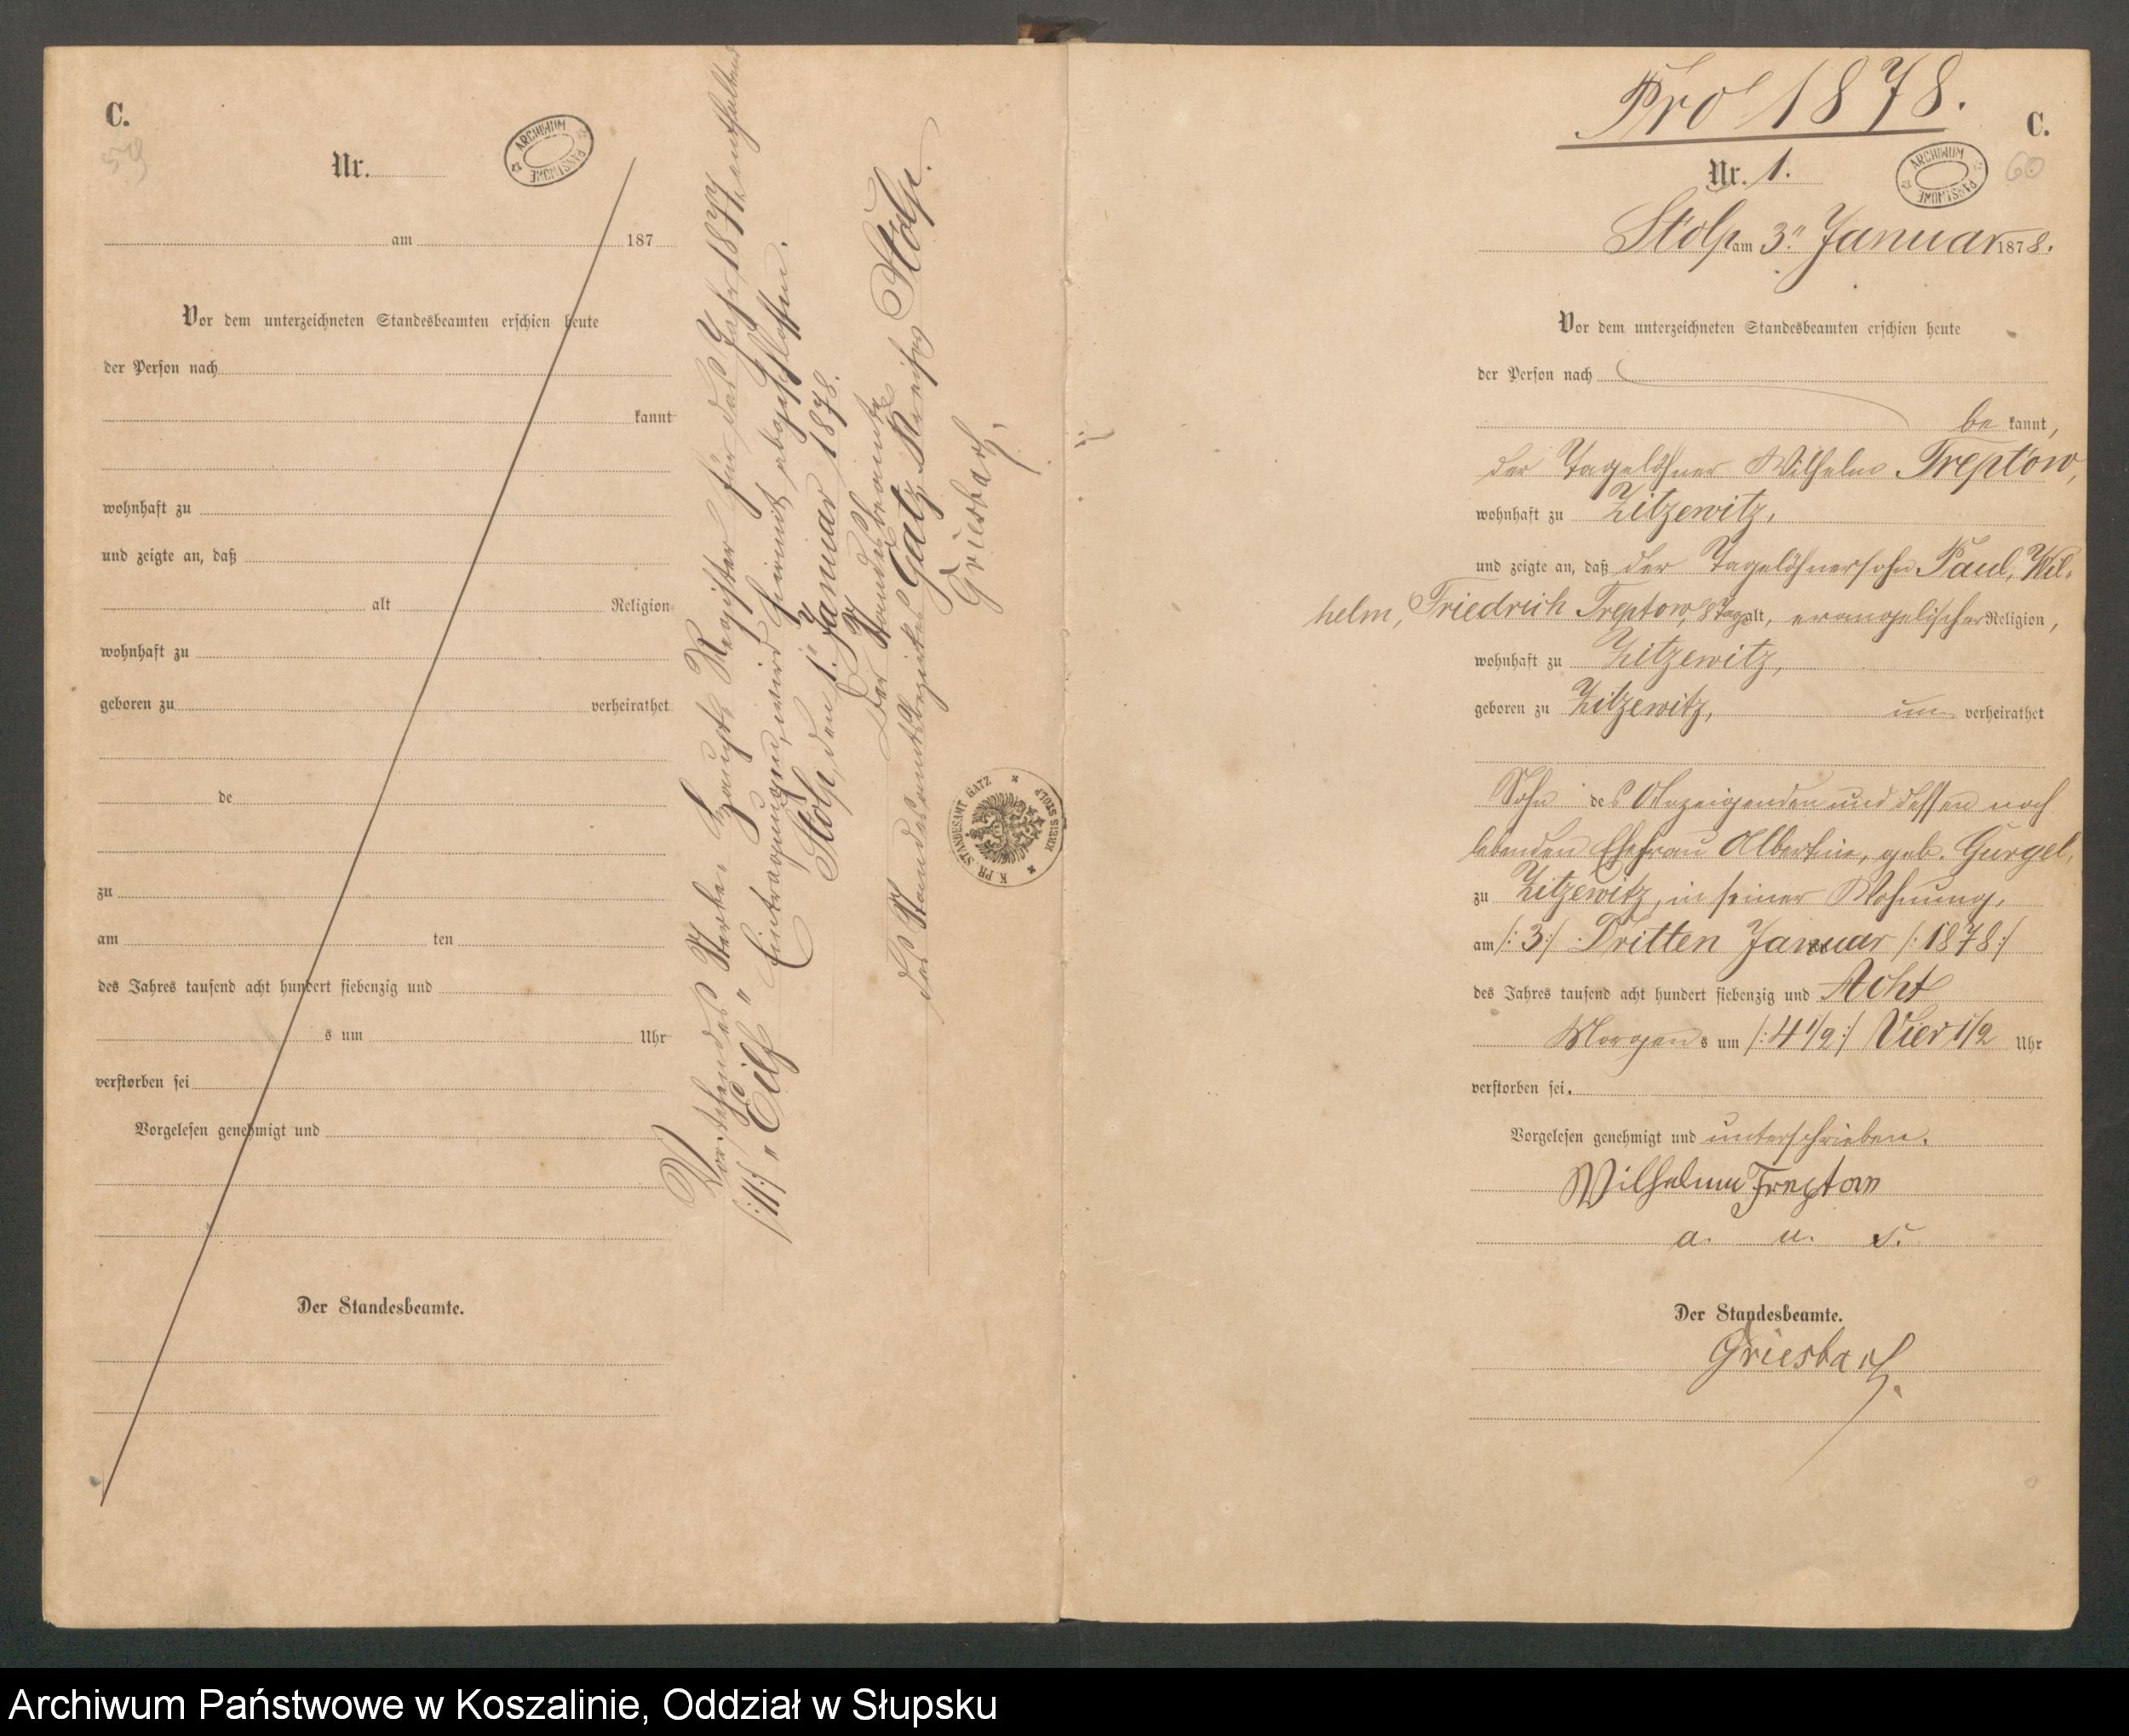 C.
59
Nr.
ARCHIWUM PAŃSTWOWE
am 187
Vor dem unterzeichneten Standesbeamten erschien heute
der Person nach
kannt
wohnhaft zu
und zeigte an, daß
alt Religion
wohnhaft zu
geboren zu verheirathet
de
zu
am ten
des Jahres tausend acht hundert siebenzig und
s um Uhr
verstorben sei
Vorgelesen genehmigt und
Der Standesbeamte.
Vorstehendes Sterbe-Haupt-Register für das Jahr 1877, enthaltend
/:11:/ "Eilf" Eintragungen, wird hiermit abgeschlossen.
Stolp, den 1." Januar 1878.
Der Standesbeamte
des Standesamtsbezirkes Gatz, Kreises Stolp.
Griesbach.
K. PR. STANDESAMT GATZ KREIS STOLP
Pro 1878.
C.
Nr. 1.
ARCHIWUM PAŃSTWOWE
60
Stolp am 3." Januar 1878.
Vor dem unterzeichneten Standesbeamten erschien heute
der Person nach
be kannt,
der Tagelöhner Wilhelm Treptow,
wohnhaft zu Zitzewitz,
und zeigte an, daß der Tagelöhnersohn Paul, Wil-
helm, Friedrich Treptow, 8 Tag alt, evangelischer Religion,
wohnhaft zu Zitzewitz,
geboren zu Zitzewitz, un verheirathet
Sohn des Anzeigenden und dessen noch
lebenden Ehefrau Albertine, geb. Gurgel,
zu Zitzewitz, in seiner Wohnung,
am /:3:/ Dritten Januar /:1878:/
des Jahres tausend acht hundert siebenzig und Acht
Morgens um /:4 1/2:/ Vier 1/2 Uhr
verstorben sei.
Vorgelesen genehmigt und unterschrieben.
Wilhelm Treptow
a. u. s.
Der Standesbeamte.
Griesbach.
Archiwum Państwowe w Koszalinie, Oddział w Słupsku